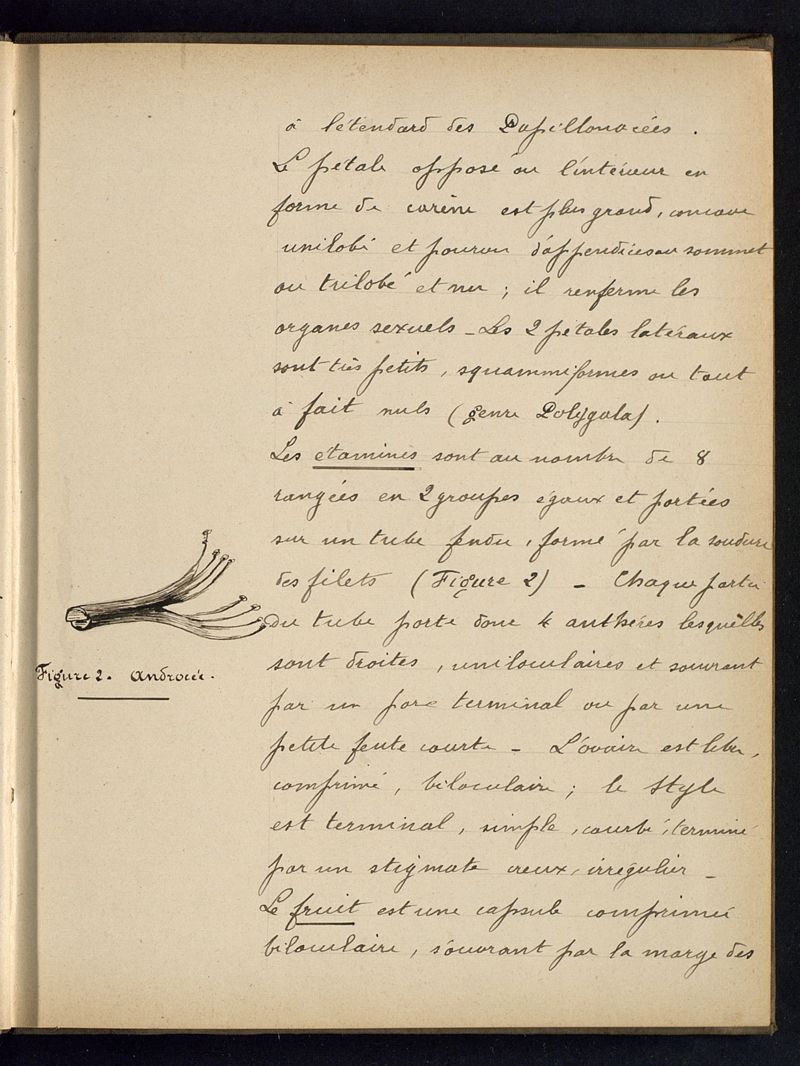 à l'étendard des Papillonacées.
Le pétale opposé ou l'intérieur en
forme de carène est plus grand, concave
unilobé et pourvu d'appendices au sommet
ou trilobé et nu ; il renferme les
organes sexuels _ Les 2 pétales latéraux
sont très petits, squammiformes ou tout
à fait nuls (genre Polygala).
Les étamines sont au nombre de 8
rangées en 2 groupes égaux et portées
sur un tube fendu, formé par la soudure
des filets (Figure 2) _ Chaque partie
du tube porte donc 4 anthères lesquelles
sont droites, uniloculaires et s'ouvrant
par un pore terminal ou par une
petite fente courte _ L'ovaire est libre,
comprimé, biloculaire ; le style
est terminal, simple, courbé, terminé
par un stigmate creux, irrégulier _
Le fruit est une capsule comprimée
biloculaire, s'ouvrant par la marge des
Figure 2. Androcée.